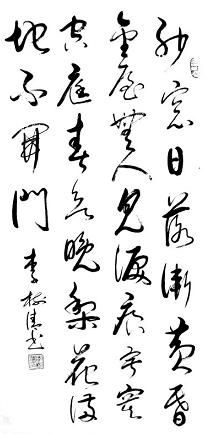 紗窗日落漸黃昏
金屋無人見淚痕寂寞
空庭春欲晚梨花滿
地不開門 李